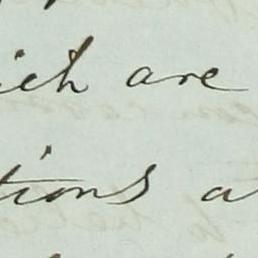 ich are
tions a